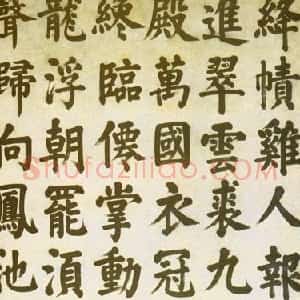 絳幘雞人報
進翠雲裘九
殿萬國衣冠
纔臨僊掌動
龍浮朝罷湏
聲歸向鳳池
Shufaziliao.com